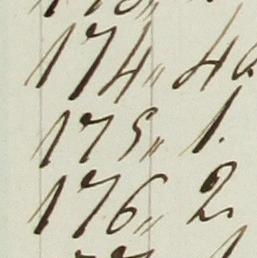 174 " 4
175 " 1.
176 " 2